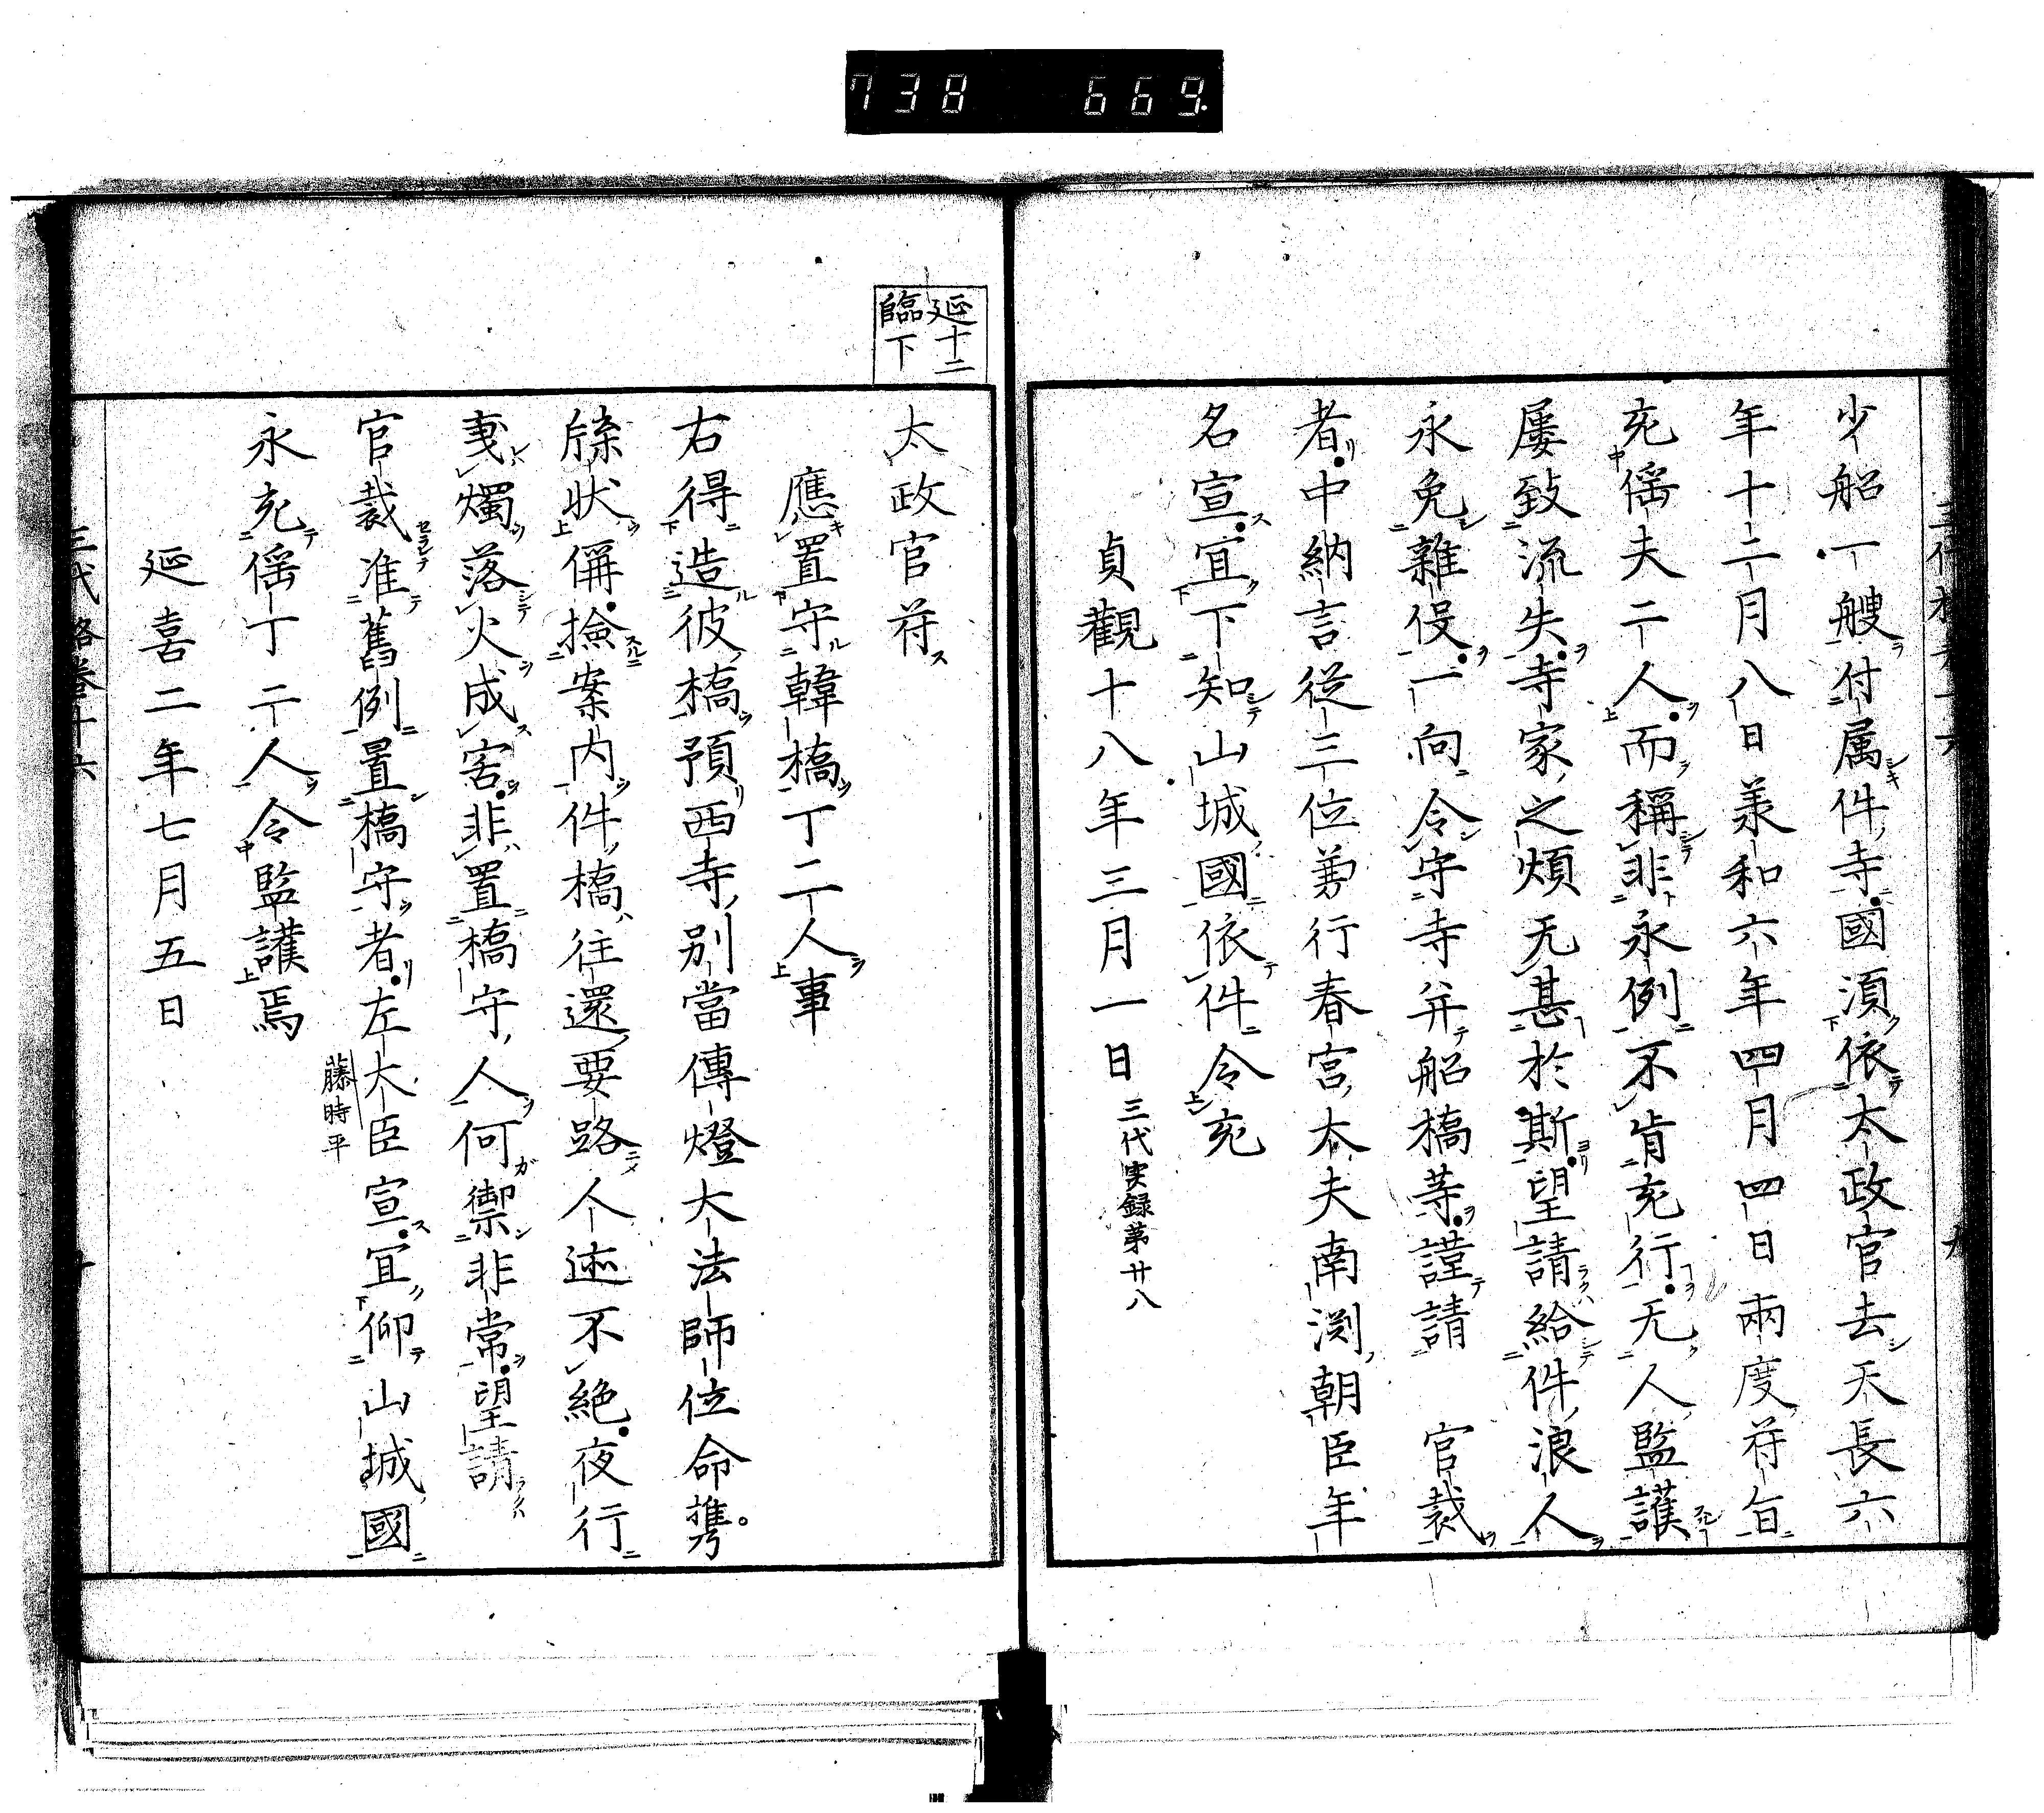 738 669.
少船一艘付属件寺國湏依太政官去天長六
年十二月八日羕和六年四月四日兩度符旨
充傜夫二人而稱非永例不肯充行无人監護
屢致流失寺家之煩无甚於斯望請給件浪人
永免雜役一向令守寺并船橋等謹請 官裁
者中納言從三位兼行春宮大夫南渕朝臣年
名宣宜下知山城國依件令充
貞觀十八年三月一日 三代実録第廿八
延十二
臨下
太政官符
應置守韓橋丁二人事
右得造彼橋預西寺別當傳燈大法師位命携
牒状偁撿案内件橋往還要路人迹不絶夜行
燭落火成害非置橋守人何禦非常望請
官裁准舊例置橋守者左大臣宣宜仰山城國
藤時平
永充傜丁二人令監護焉
延喜二年七月五日